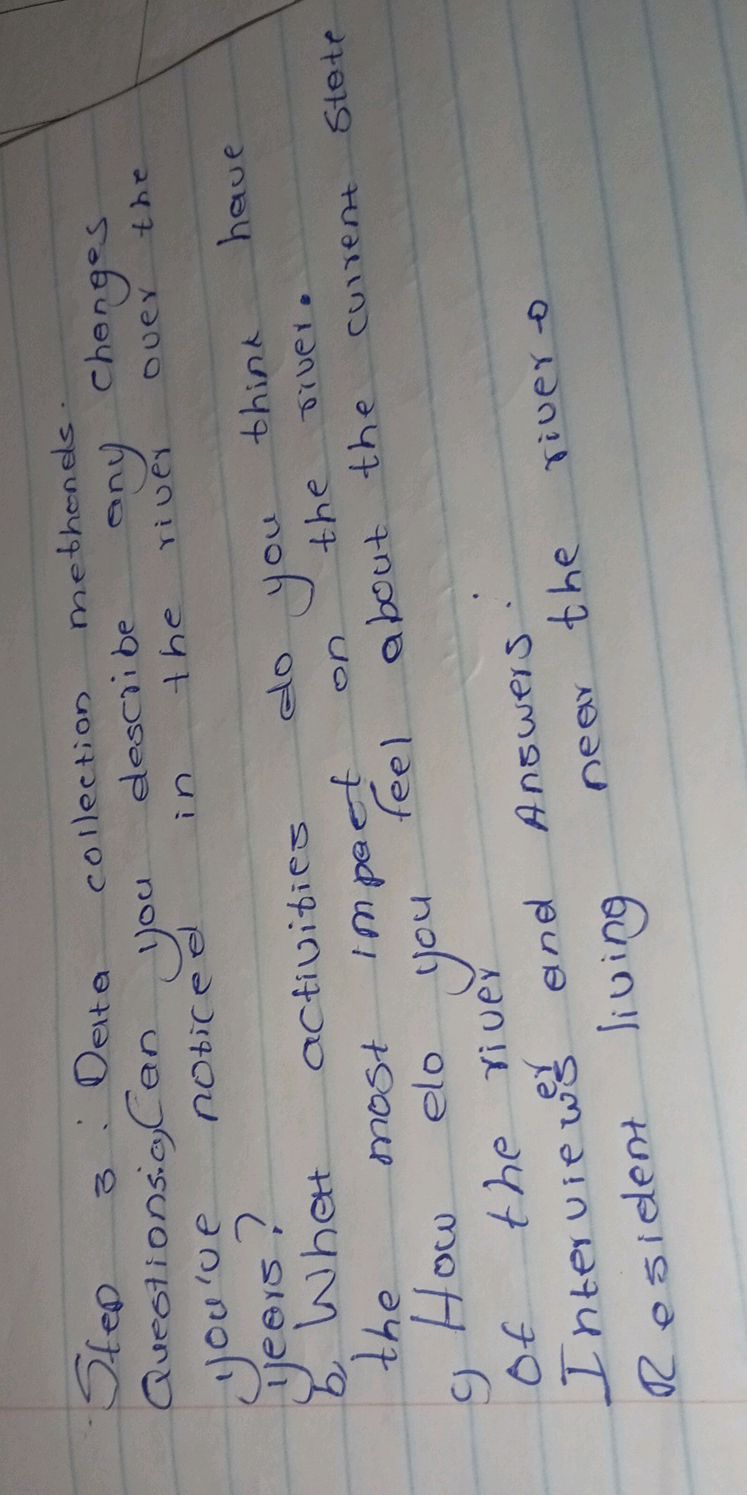 Step 3: Data collection methonds.
Questions:a, Can you describe any changes
you've noticed in the river over the
years?
b, What activities do you think have
the most impact on the river.
c) How do you feel about the current state
of the river
Interviewers and Answers:
Resident living near the river →